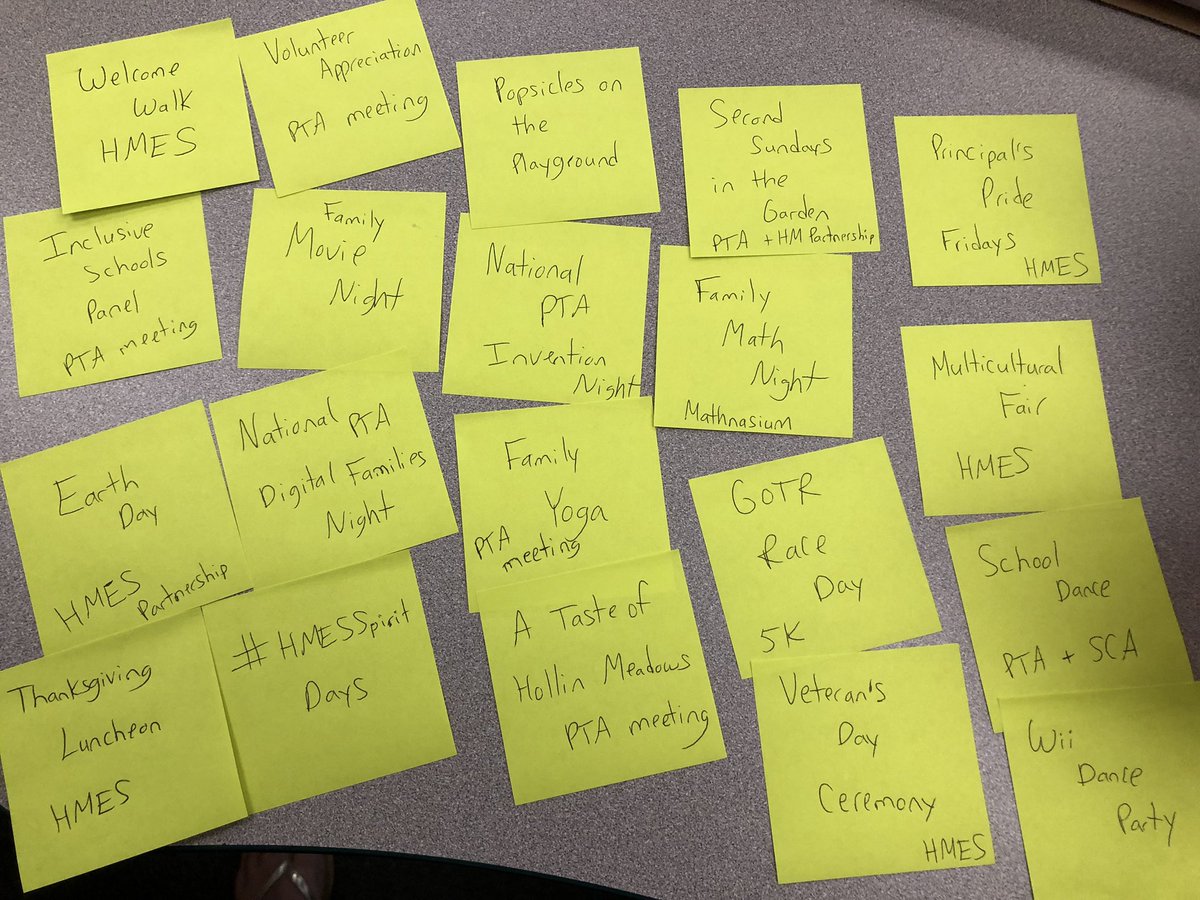 Welcome
Walk
HMES
Volunteer
Appreciation
PTA meeting
Popsicles on
the
Playground
Second
Sundays
in the
Garden
PTA + HM Partnership
Principal's
Pride
Fridays
HMES
Inclusive
Schools
Panel
PTA meeting
Family
Movie
Night
National
PTA
Invention
Night
Family
Math
Night
Mathnasium
Multicultural
Fair
HMES
Earth
Day
HMES
Partnership
National PTA
Digital Families
Night
Family
Yoga
PTA
meeting
GOTR
Race
Day
5K
School
Dance
PTA + SCA
Thanksgiving
Luncheon
HMES
#HMESSpirit
Days
A Taste of
Hollin Meadows
PTA meeting
Veteran's
Day
Ceremony
HMES
Wii
Dance
Party